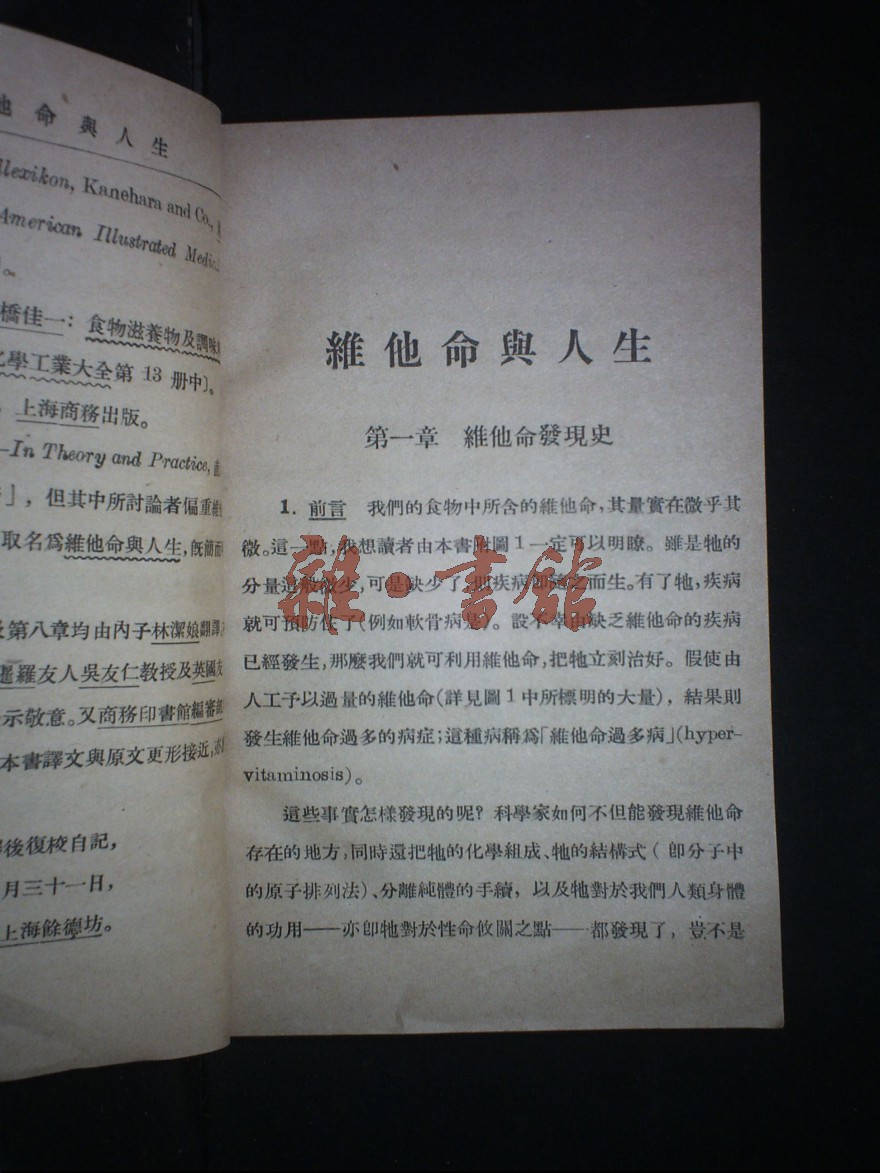 他命與人生
llexikon, Kanehara and Co.,
American Illustrated Medic
。
橋佳一：食物滋養物及調味
化學工業大全第 13 册中〕。
，上海商務出版。
—In Theory and Practice,
」，但其中所討論者偏重維
取名爲維他命與人生，旣簡而
及第八章均由內子林潔娘翻譯，
暹羅友人吳友仁教授及英國友
示敬意。又商務印書館編審
本書譯文與原文更形接近，亦
後復校自記，
月三十一日，
上海餘德坊。
維他命與人生
第一章 維他命發現史
1. 前言 我們的食物中所含的維他命，其量實在微乎其
微。這一點，我想讀者由本書附圖 1 一定可以明瞭。雖是牠的
分量這般微少，可是缺少了，則疾病卽隨之而生。有了牠，疾病
就可預防住了（例如軟骨病是）。設不幸由缺乏維他命的疾病
已經發生，那麼我們就可利用維他命，把牠立刻治好。假使由
人工予以過量的維他命（詳見圖 1 中所標明的大量），結果則
發生維他命過多的病症；這種病稱爲「維他命過多病」(hyper-
vitaminosis)。
這些事實怎樣發現的呢？科學家如何不但能發現維他命
存在的地方，同時還把牠的化學組成、牠的結構式（卽分子中
的原子排列法）、分離純體的手續，以及牠對於我們人類身體
的功用——亦卽牠對於性命攸關之點——都發現了，豈不是
雜·書館